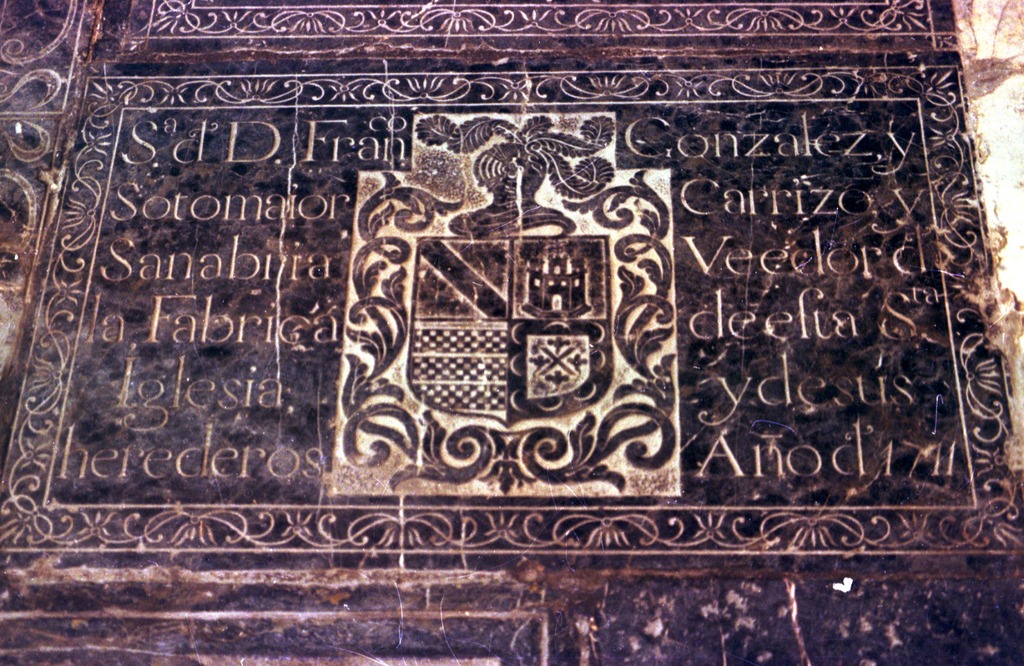 S.ª d D. Fran.co Gonzalez, y
Sotomaior Carrizo, y
Sanabrria Veedor d
la Fabrica de eſta S.ta
Iglesia, y de sus
herederos Año d 1711